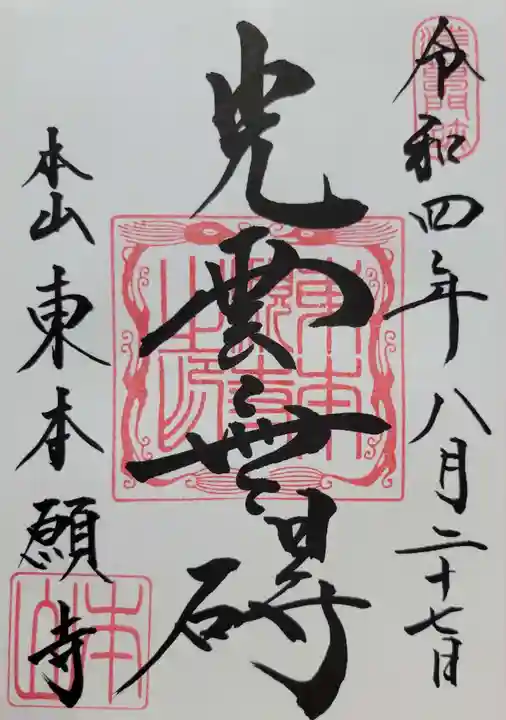 令和四年八月二十七日
光雲無碍
本山東本願寺